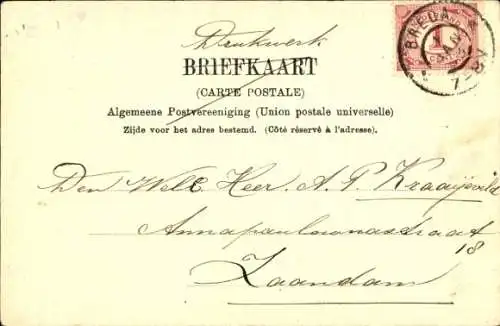 Drukwerk
BRIEFKAART
(CARTE POSTALE)
Algemeene Postvereeniging (Union postale universelle)
Zijde voor het adres bestemd. (Côté réservé à l'adresse).
BREDA
1
7-8V
Den Wel. Heer. A. P. Kraaijeveld
Annapaulownastraat
18
Zaandam